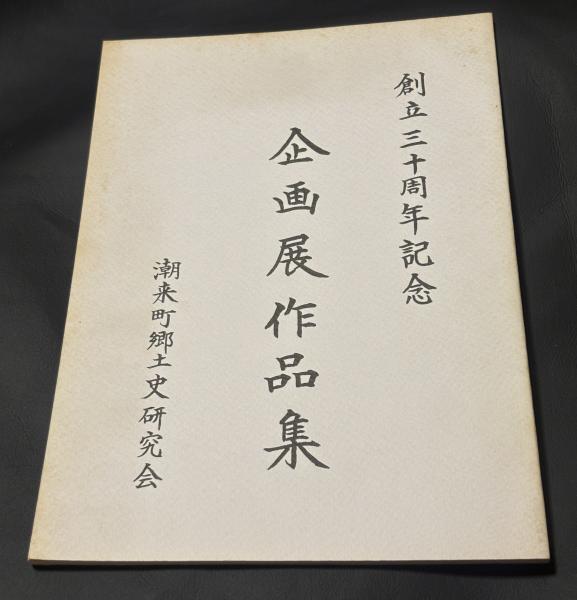 創立三十周年記念
企画展作品集
潮来町郷土史研究会